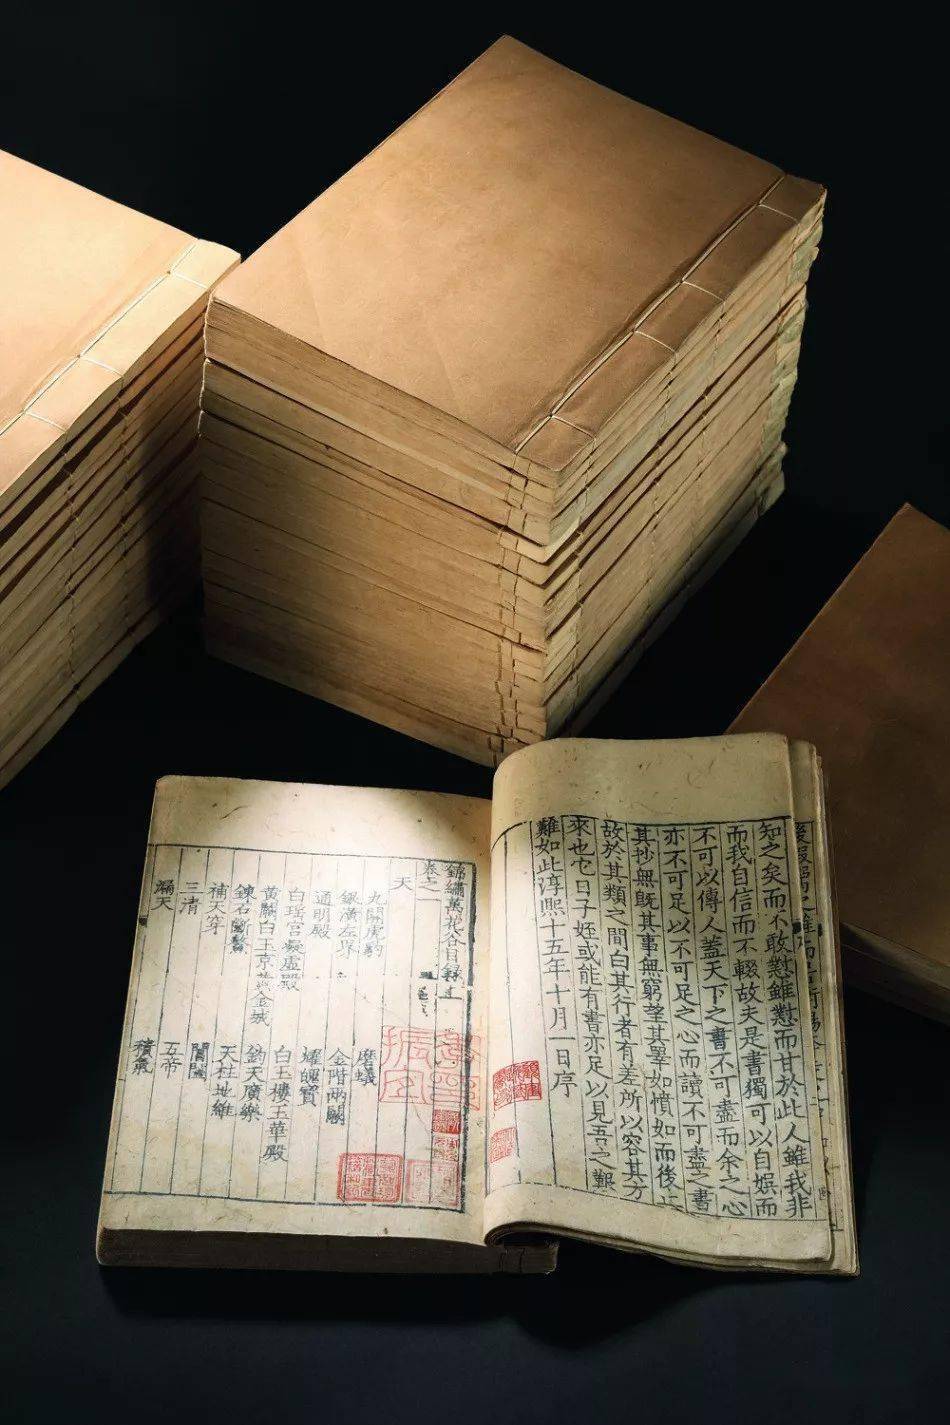 知之矣而不敢懟雖懟而甘於此人雖我非
而我自信而不輟故夫是書獨可以自娛而
不可以傳人蓋天下之書不可盡而余之心
亦不可足以不可足之心而讀不可盡之書
其抄無既其事無窮望其睪如憤如而後
故於其類之間白其行者有差所以容其方
來也它日子姪或能有書亦足以見吾之艱
難如此淳熙十五年十月一日序
錦繡萬花谷目錄上
卷之一
天
九關虎豹 磨蟻
銀潢左界 金階兩闕
通明殿 燿魄寶
白瑤宮凝虛殿 白玉樓玉華殿
黃闕白玉京黃金城 鈞天廣樂
鍊石斷鰲 天柱地維
補天穿 閶闔
三清 五帝
漏天 積氣
振宜